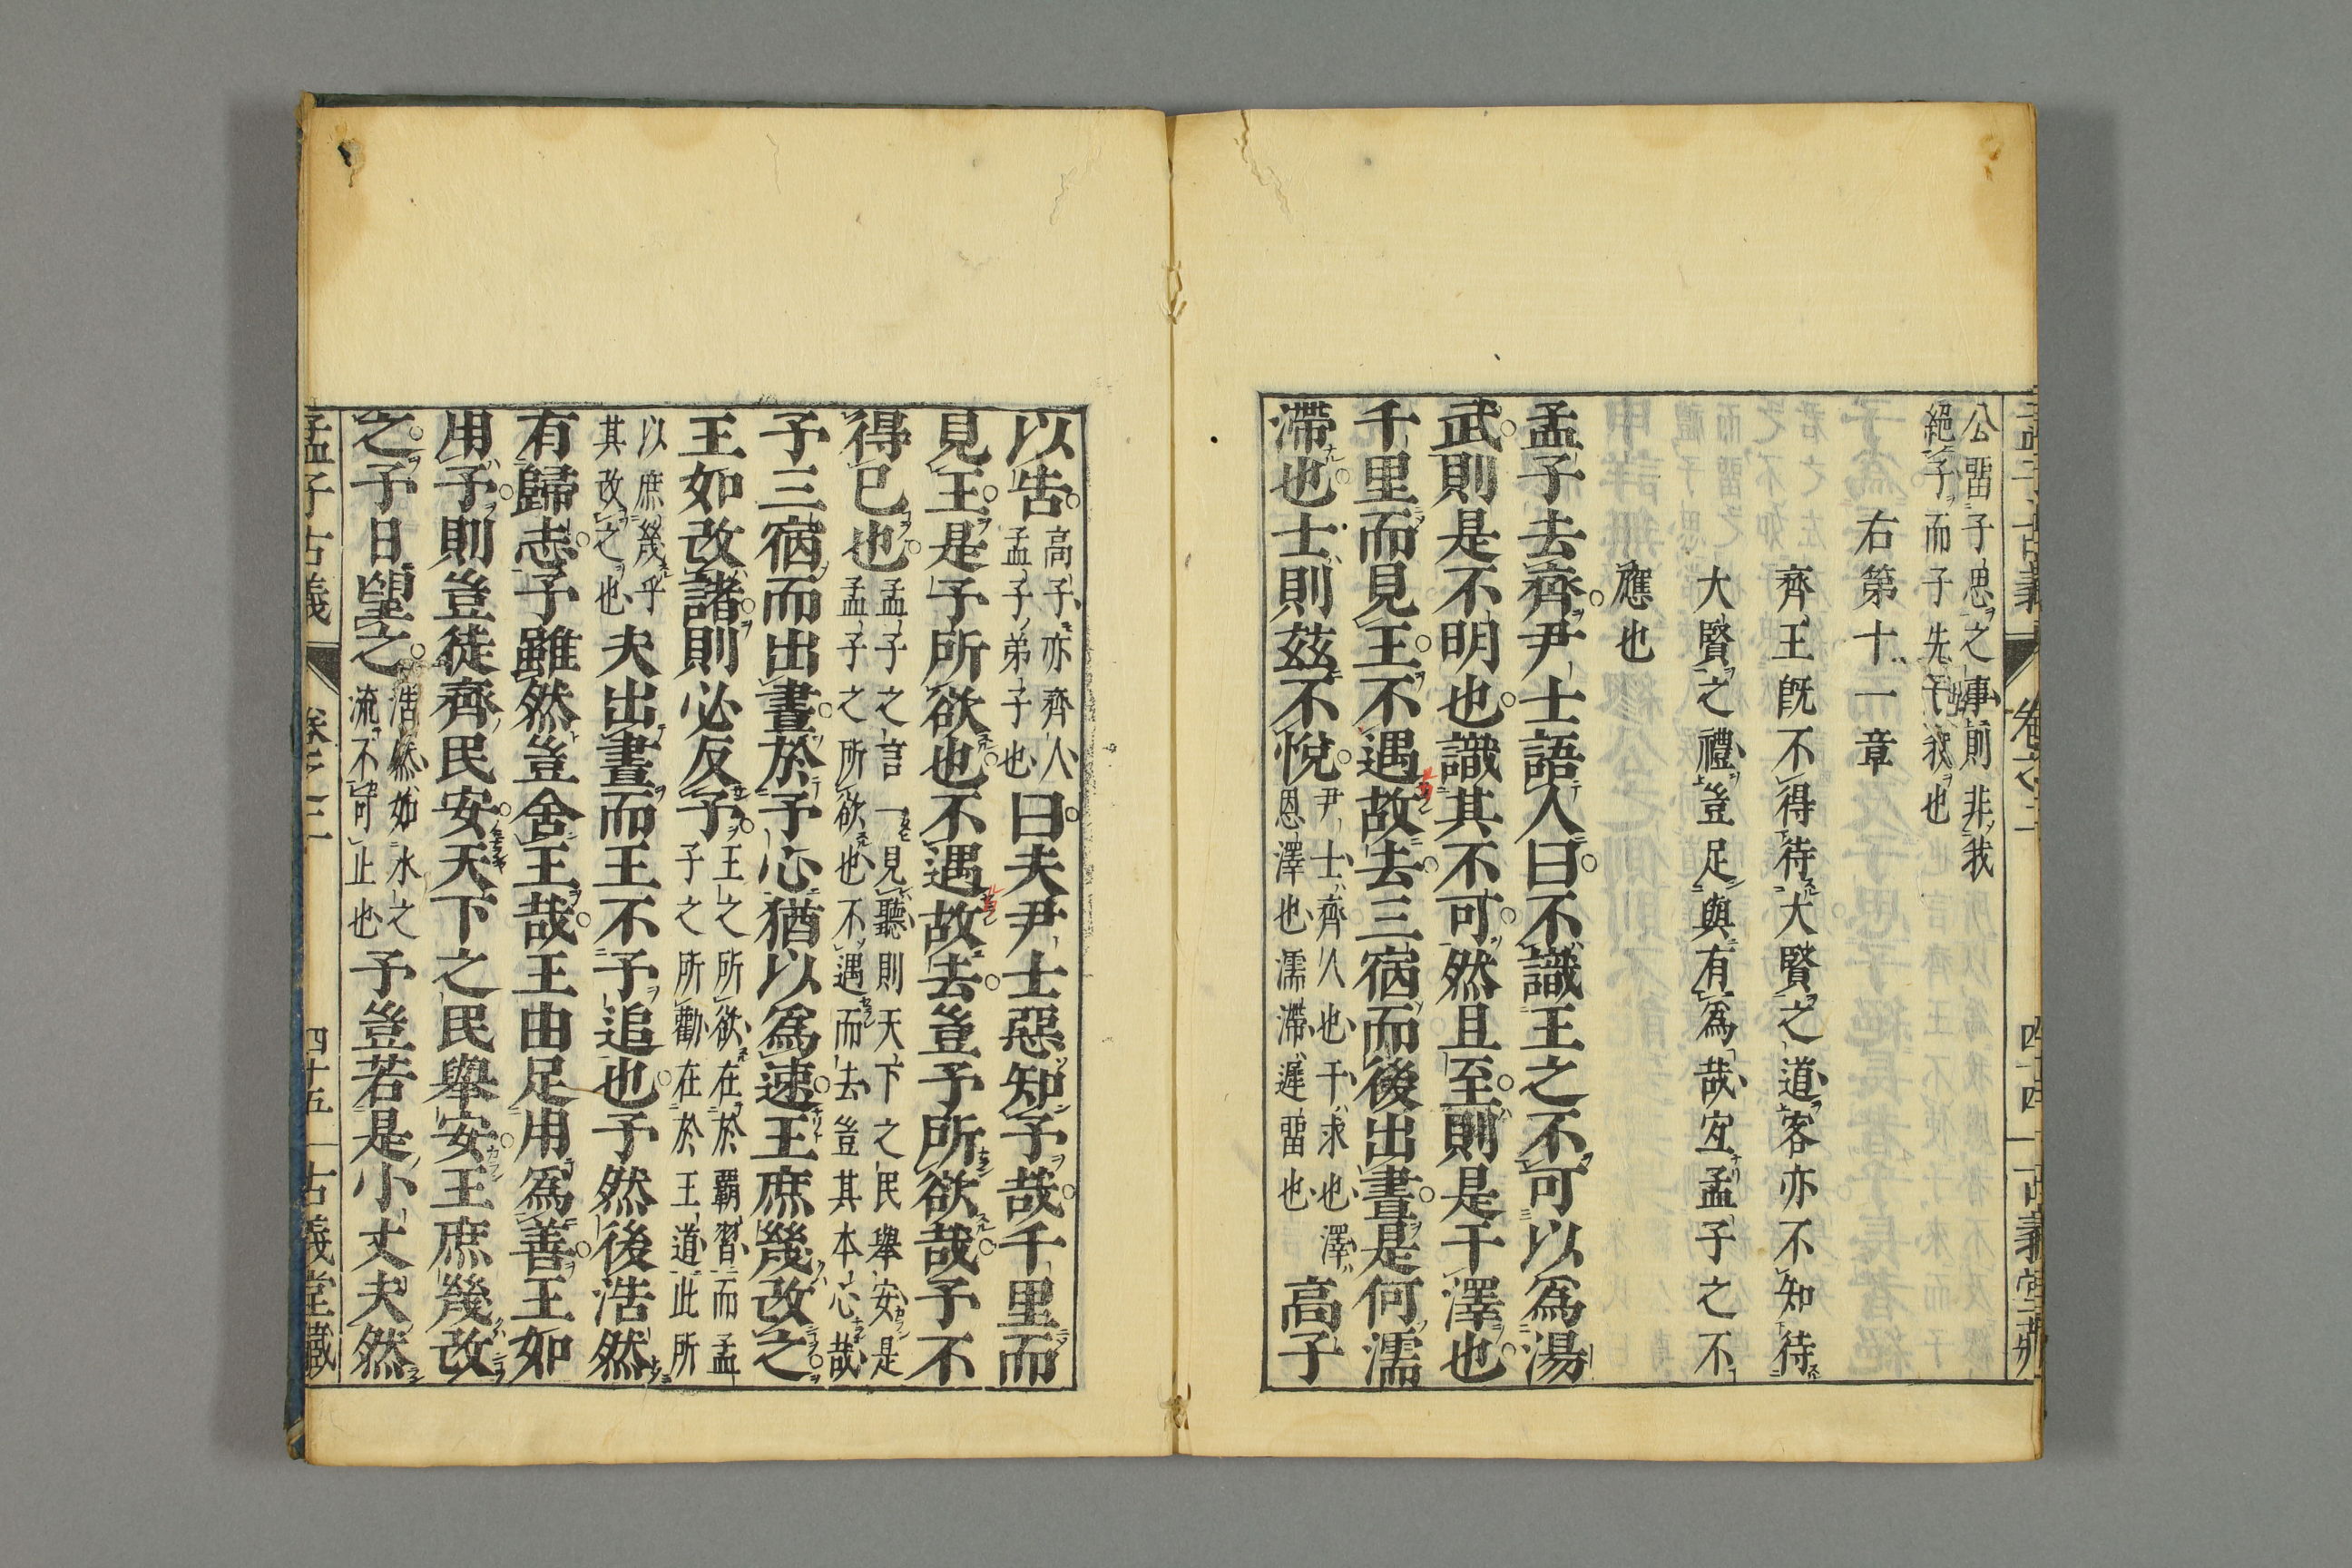 公畱子思之事則非我
絕子而子先子絕我也
右第十一章
齊王既不得待大賢之道客亦不知待
大賢之禮豈足與有爲哉宜孟子之不
應也
孟子去齊尹士語人曰不識王之不可以爲湯
武則是不明也識其不可然且至則是干澤也
千里而見王不遇故去三宿而後出晝是何濡
滯也士則茲不悅
尹士齊人也干求也澤
恩澤也濡滯遲畱也
高子
以告
高子亦齊人
孟子弟子也
曰夫尹士惡知予哉千里而
見王是予所欲也不遇故去豈予所欲哉予不
得已也
孟子之言一見聽則天下之民舉安是
孟子之所欲也不遇而去豈其本心哉
予三宿而出晝於予心猶以爲速王庶幾改之
王如改諸則必反予
王之所欲在於霸習而孟
子之所勸在於王道此所
以庶幾乎
其改之也
夫出晝而王不予追也予然後浩然
有歸志予雖然豈舍王哉王由足用爲善王如
用予則豈徒齊民安天下之民舉安王庶幾改
之予日望之
浩然如水之
流不可止也
予豈若是小丈夫然
孟子古義 卷之二 四十五 古義堂藏